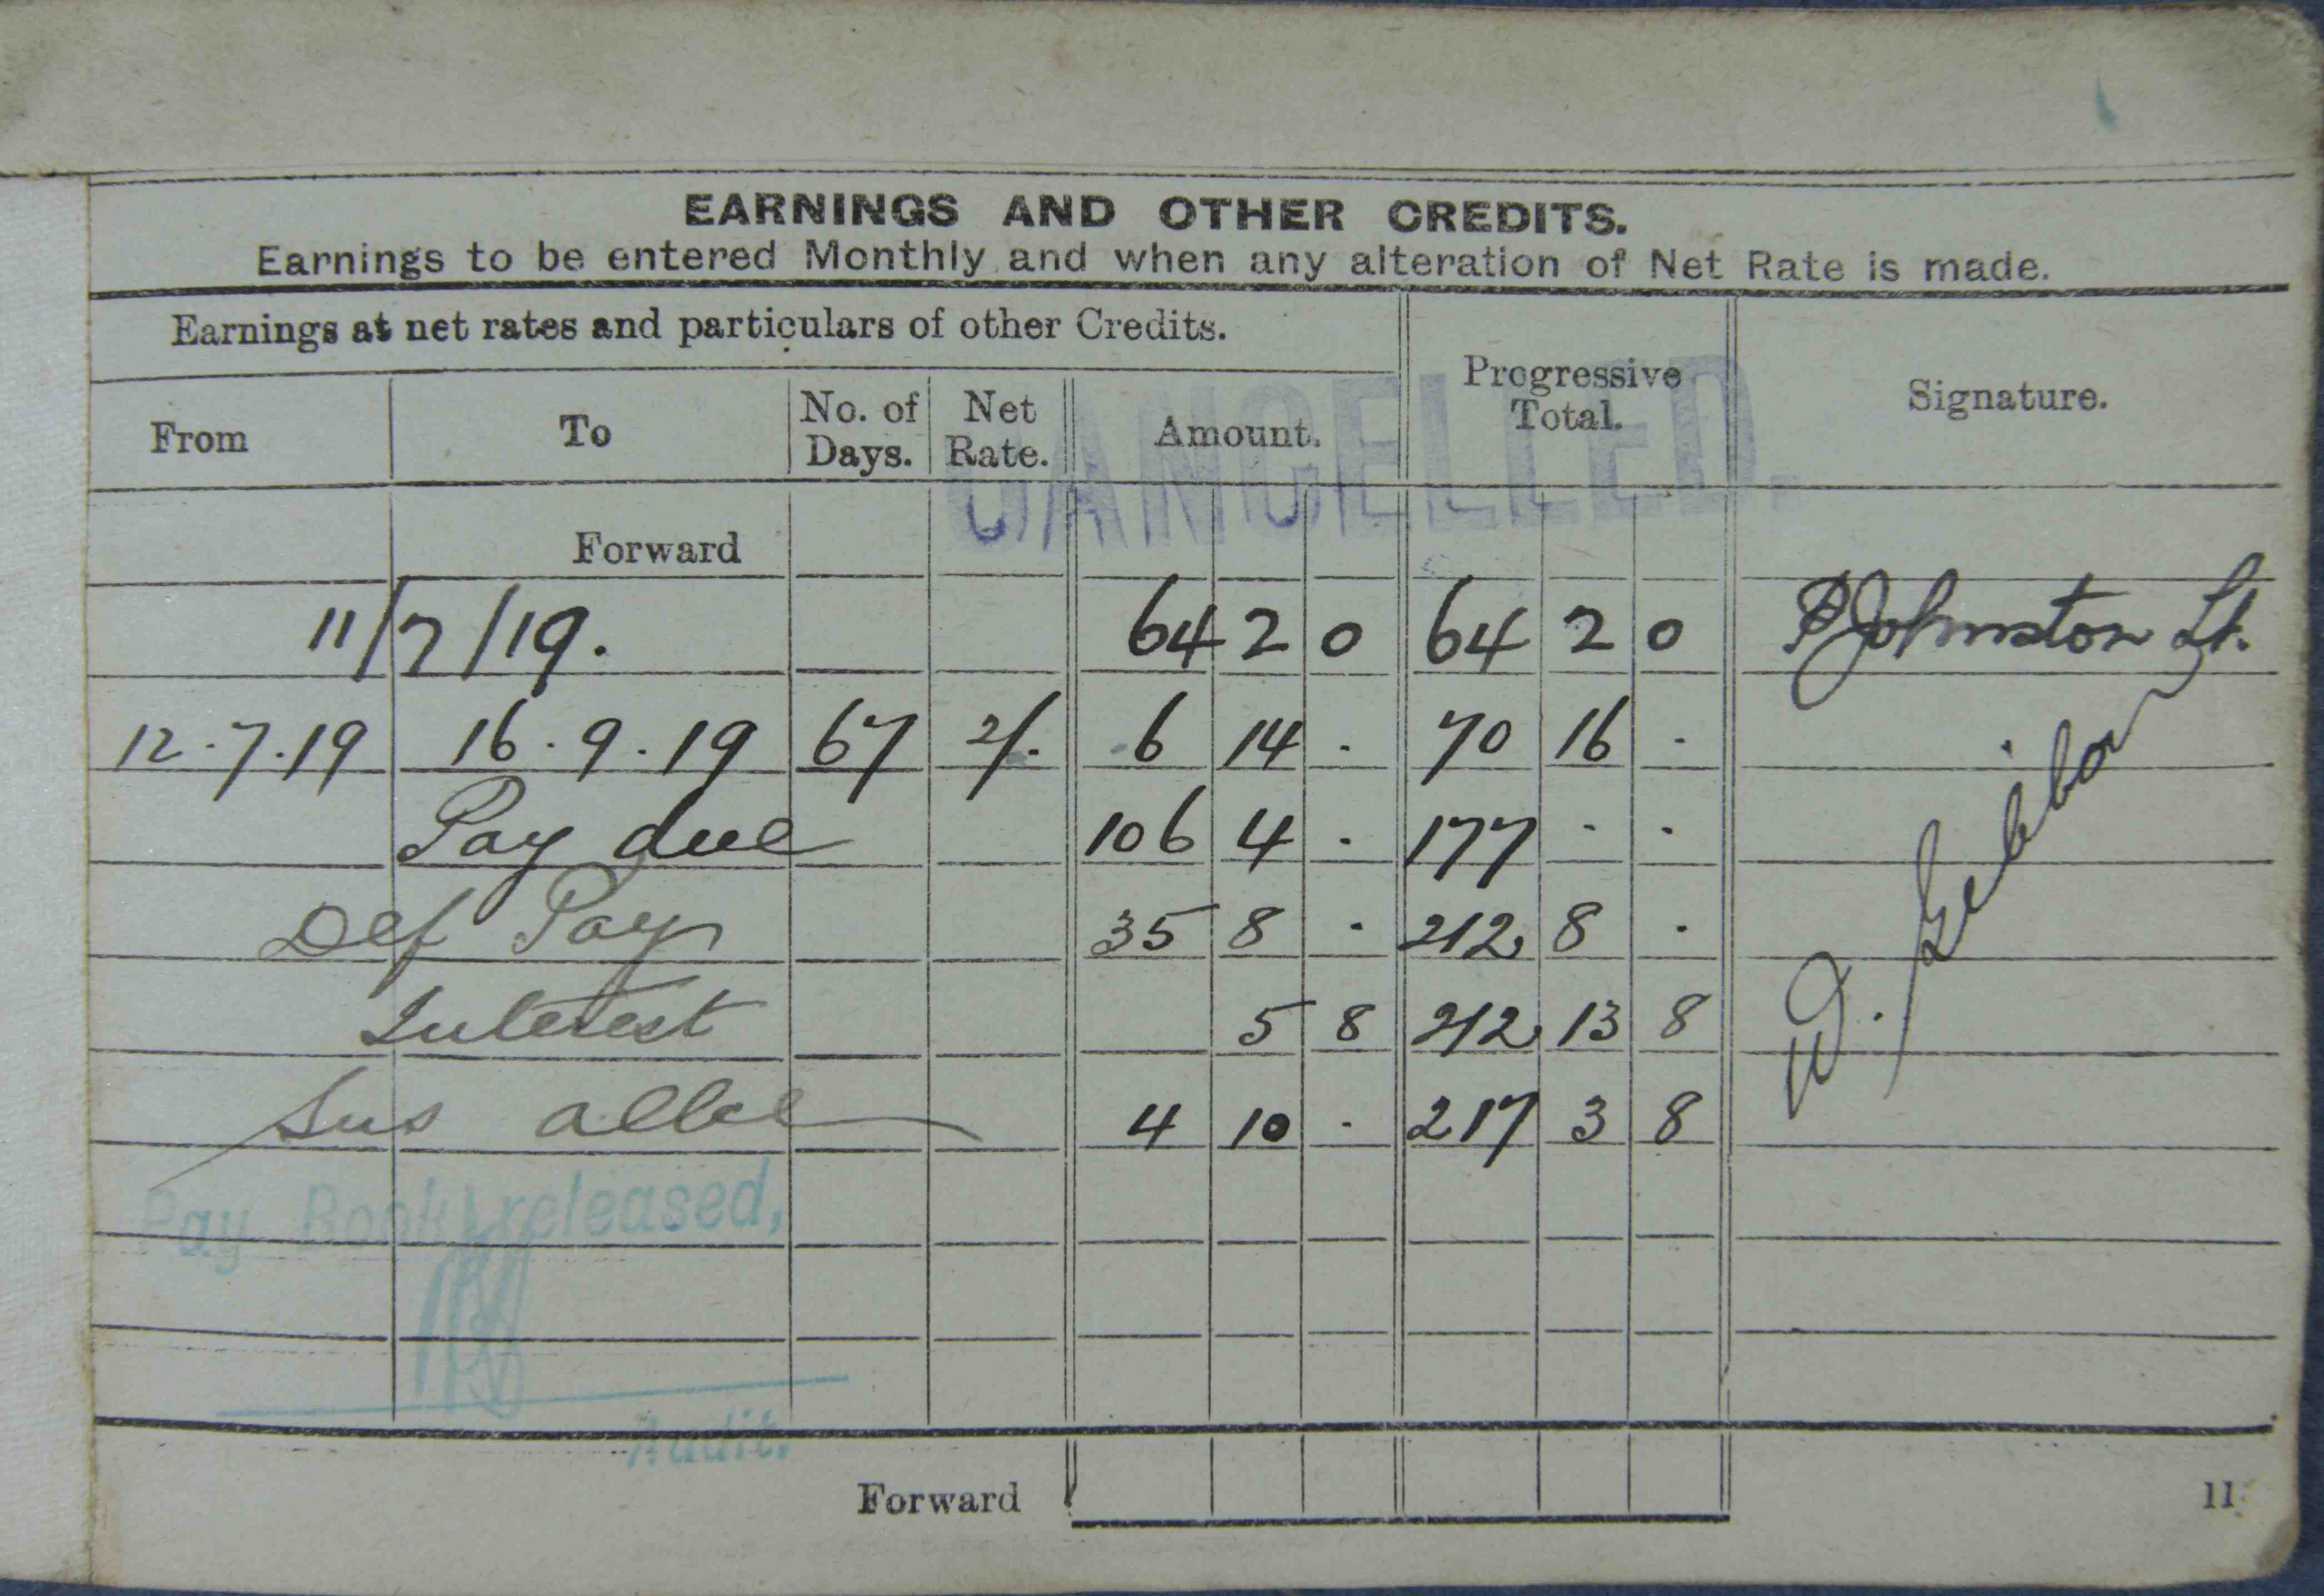 EARNINGS AND OTHER CREDITS.
Earnings to be entered Monthly and when any alteration of Net Rate is made.
Earnings at net rates and particulars of other Credits.
From To No. of Days. Net Rate. Amount. Progressive Total. Signature.
CANCELLED.
Forward
11/7/19. 64 2 0 64 2 0 Johnston Lt.
12.7.19 16.9.19 67 2/- 6 14 . 70 16 .
Pay due 106 4 . 177 . .
Def Pay 35 8 . 212 8 .
Interest 5 8 212 13 8
Sus allce 4 10 . 217 3 8
Pay Book released,
Audit.
Forward
11